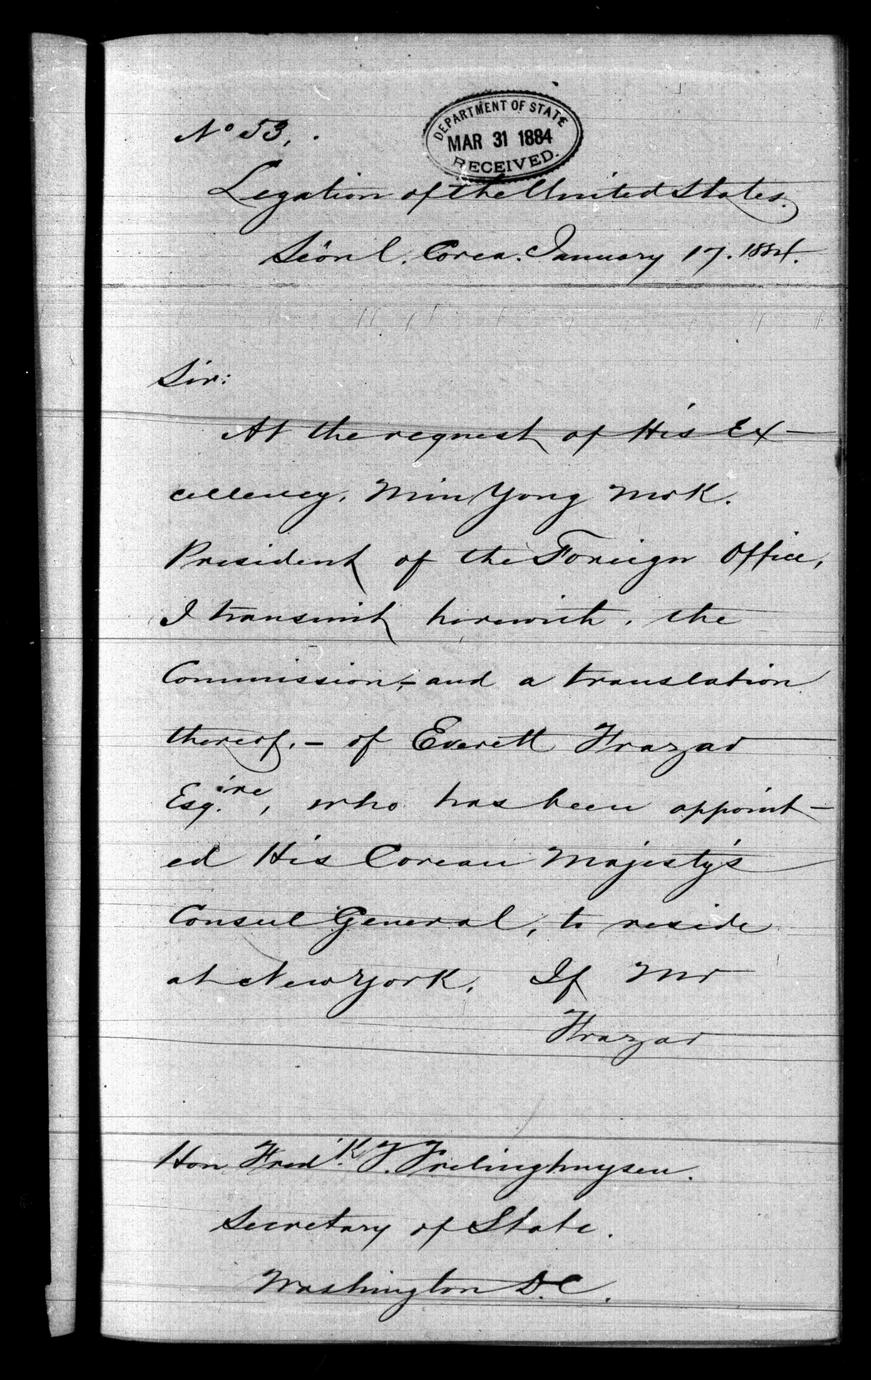 No 53.
DEPARTMENT OF STATE
MAR 31 1884
RECEIVED.
Legation of the United States.
Sëoul, Corea. January 17. 1884.
Sir:
At the request of His Ex-
cellency, Min Yong Mok.
President of the Foreign Office,
I transmit herewith, the
Commission,- and a translation
thereof,- of Everett Frazar
Esq.ire, who has been appoint-
ed His Corean Majesty's
Consul General, to reside
at New York. If Mr
Frazar
Hon Fred.k T. Frelinghuysen.
Secretary of State.
Washington D.C.